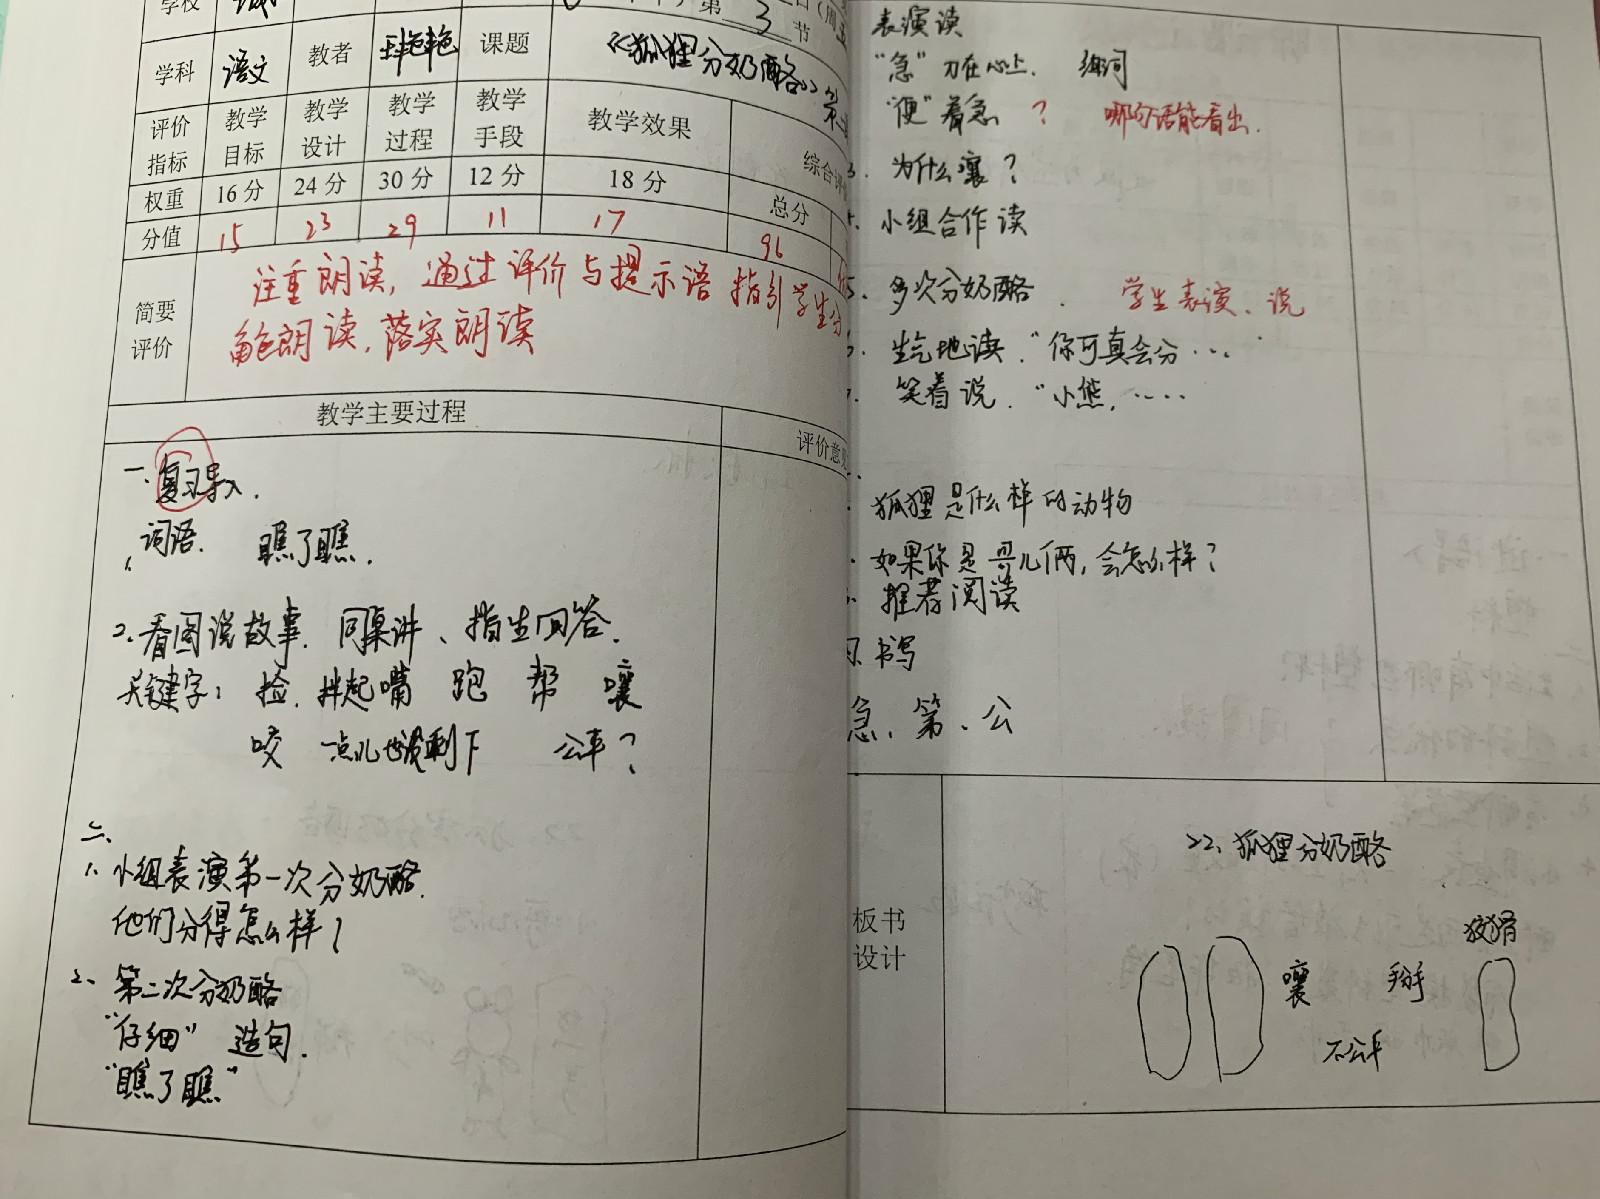 学校
第 3 节
学科 语文 教者 课题 《狐狸分奶酪》第二
评价指标 教学目标 教学设计 教学过程 教学手段 教学效果 综合评
权重 16分 24分 30分 12分 18分 总分
分值 15 23 29 11 17 96
简要评价 注重朗读，通过评价与提示语指引学生分
角色朗读，落实朗读
教学主要过程 评价意见
一、复习导入.
1、词语. 瞧了瞧.
2、看图说故事. 同桌讲、指生回答.
关键字： 捡. 拌起嘴 跑 帮 嚷
咬 一点儿也没剩下 公平？
二、
1、小组表演第一次分奶酪.
他们分得怎么样？
2、第二次分奶酪
“仔细” 造句.
“瞧了瞧”
表演读
“急” 刀在心上. 组词
“便” 着急 ？ 哪句话能看出.
3. 为什么嚷？
4. 小组合作读
5. 多次分奶酪. 学生表演、说
6. 生气地读.“你可真会分...
7. 笑着说.“小熊，.....
狐狸是什么样的动物
如果你是哥儿俩，会怎么样？
推荐阅读
书写
急、第、公
板书设计
22、狐狸分奶酪
狡猾
嚷 掰
不公平